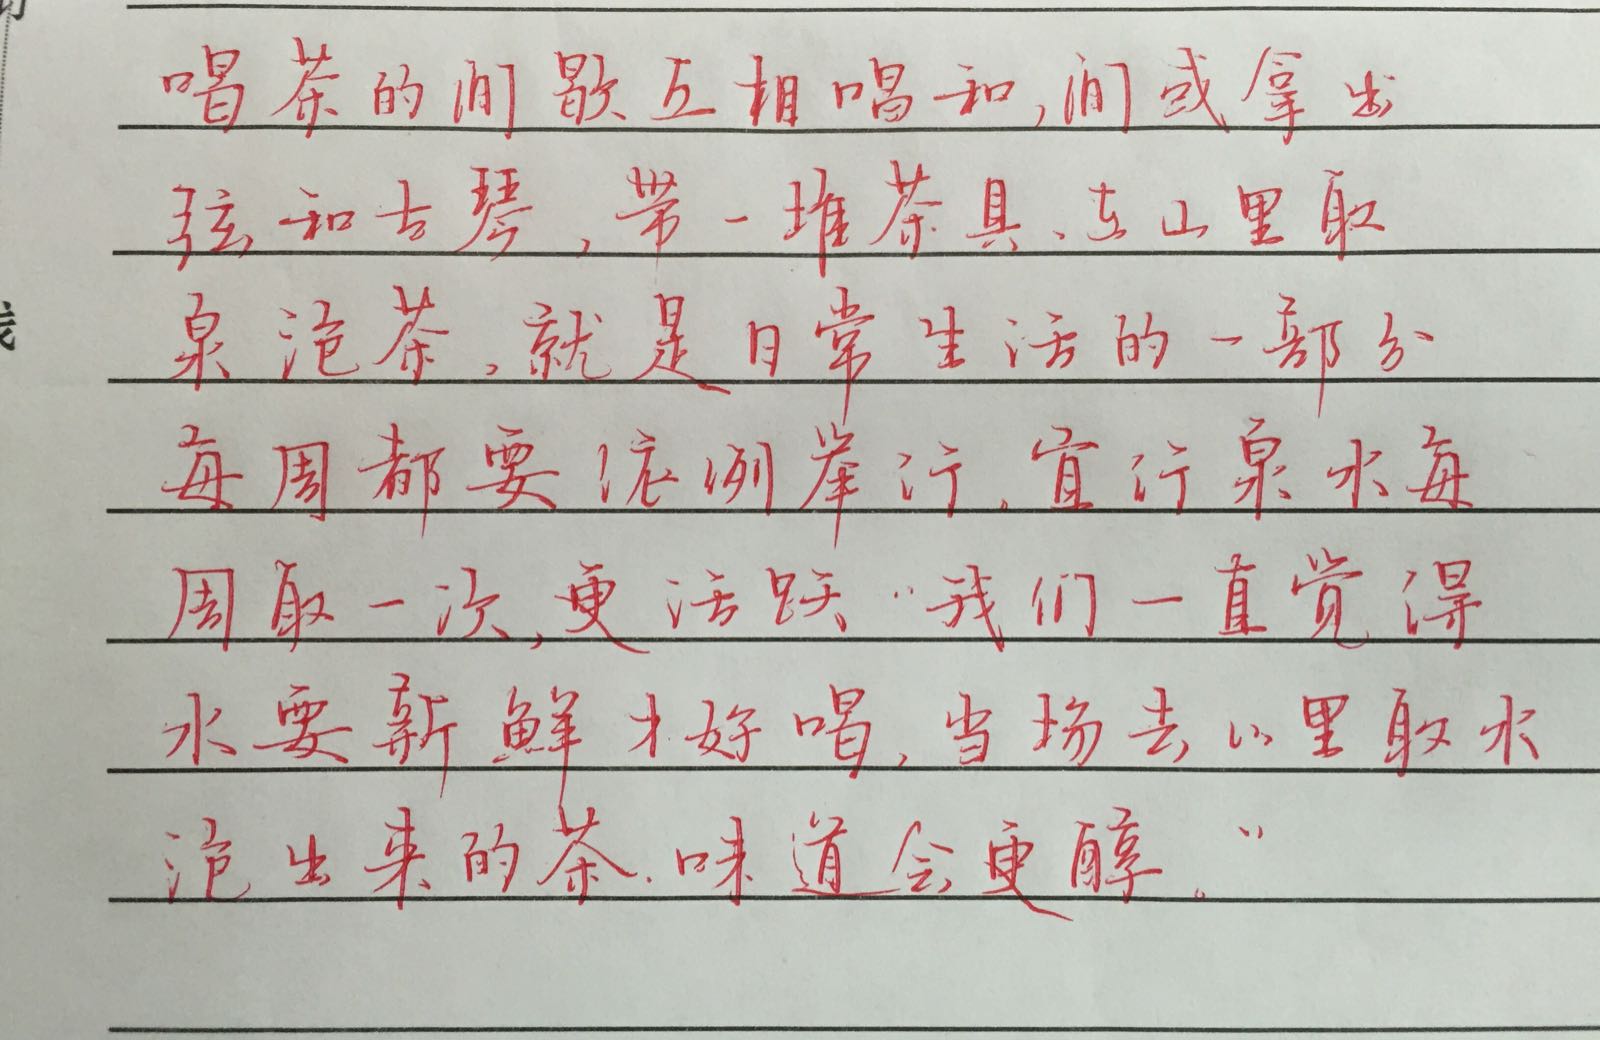 喝茶的间歇互相唱和,间或拿出
弦和古琴,带一堆茶具、在山里取
泉泡茶,就是日常生活的一部分
每周都要依例举行,宜行泉水每
周取一次,更活跃“我们一直觉得
水要新鲜才好喝,当场去山里取水
泡出来的茶、味道会更醇。”